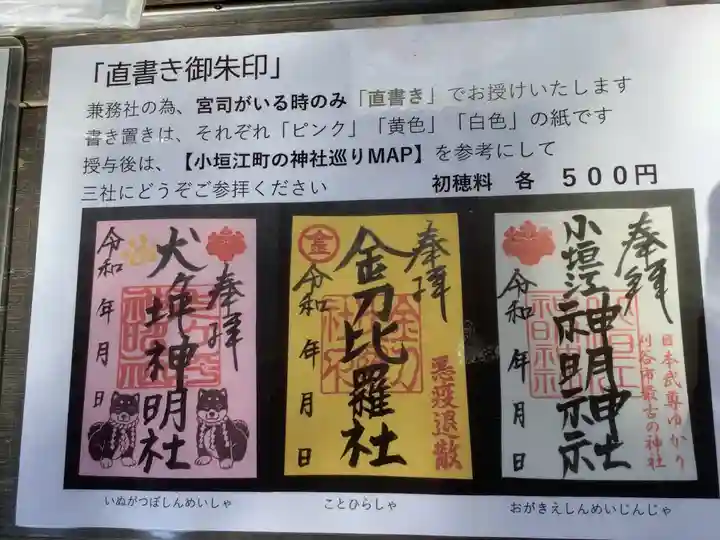 「直書き御朱印」
兼務社の為、宮司がいる時のみ「直書き」でお授けいたします
書き置きは、それぞれ「ピンク」「黄色」「白色」の紙です
授与後は、【小垣江町の神社巡りMAP】を参考にして
三社にどうぞご参拝ください
初穂料 各 500円
奉拝
犬ヶ坪神明社
令和 年 月 日
奉拝
金刀比羅社
令和 年 月 日
金
悪疫退散
奉拝
小垣江神明神社
令和 年 月 日
日本武尊ゆかり
刈谷市最古の神社
いぬがつぼしんめいしゃ
ことひらしゃ
おがきえしんめいじんじゃ